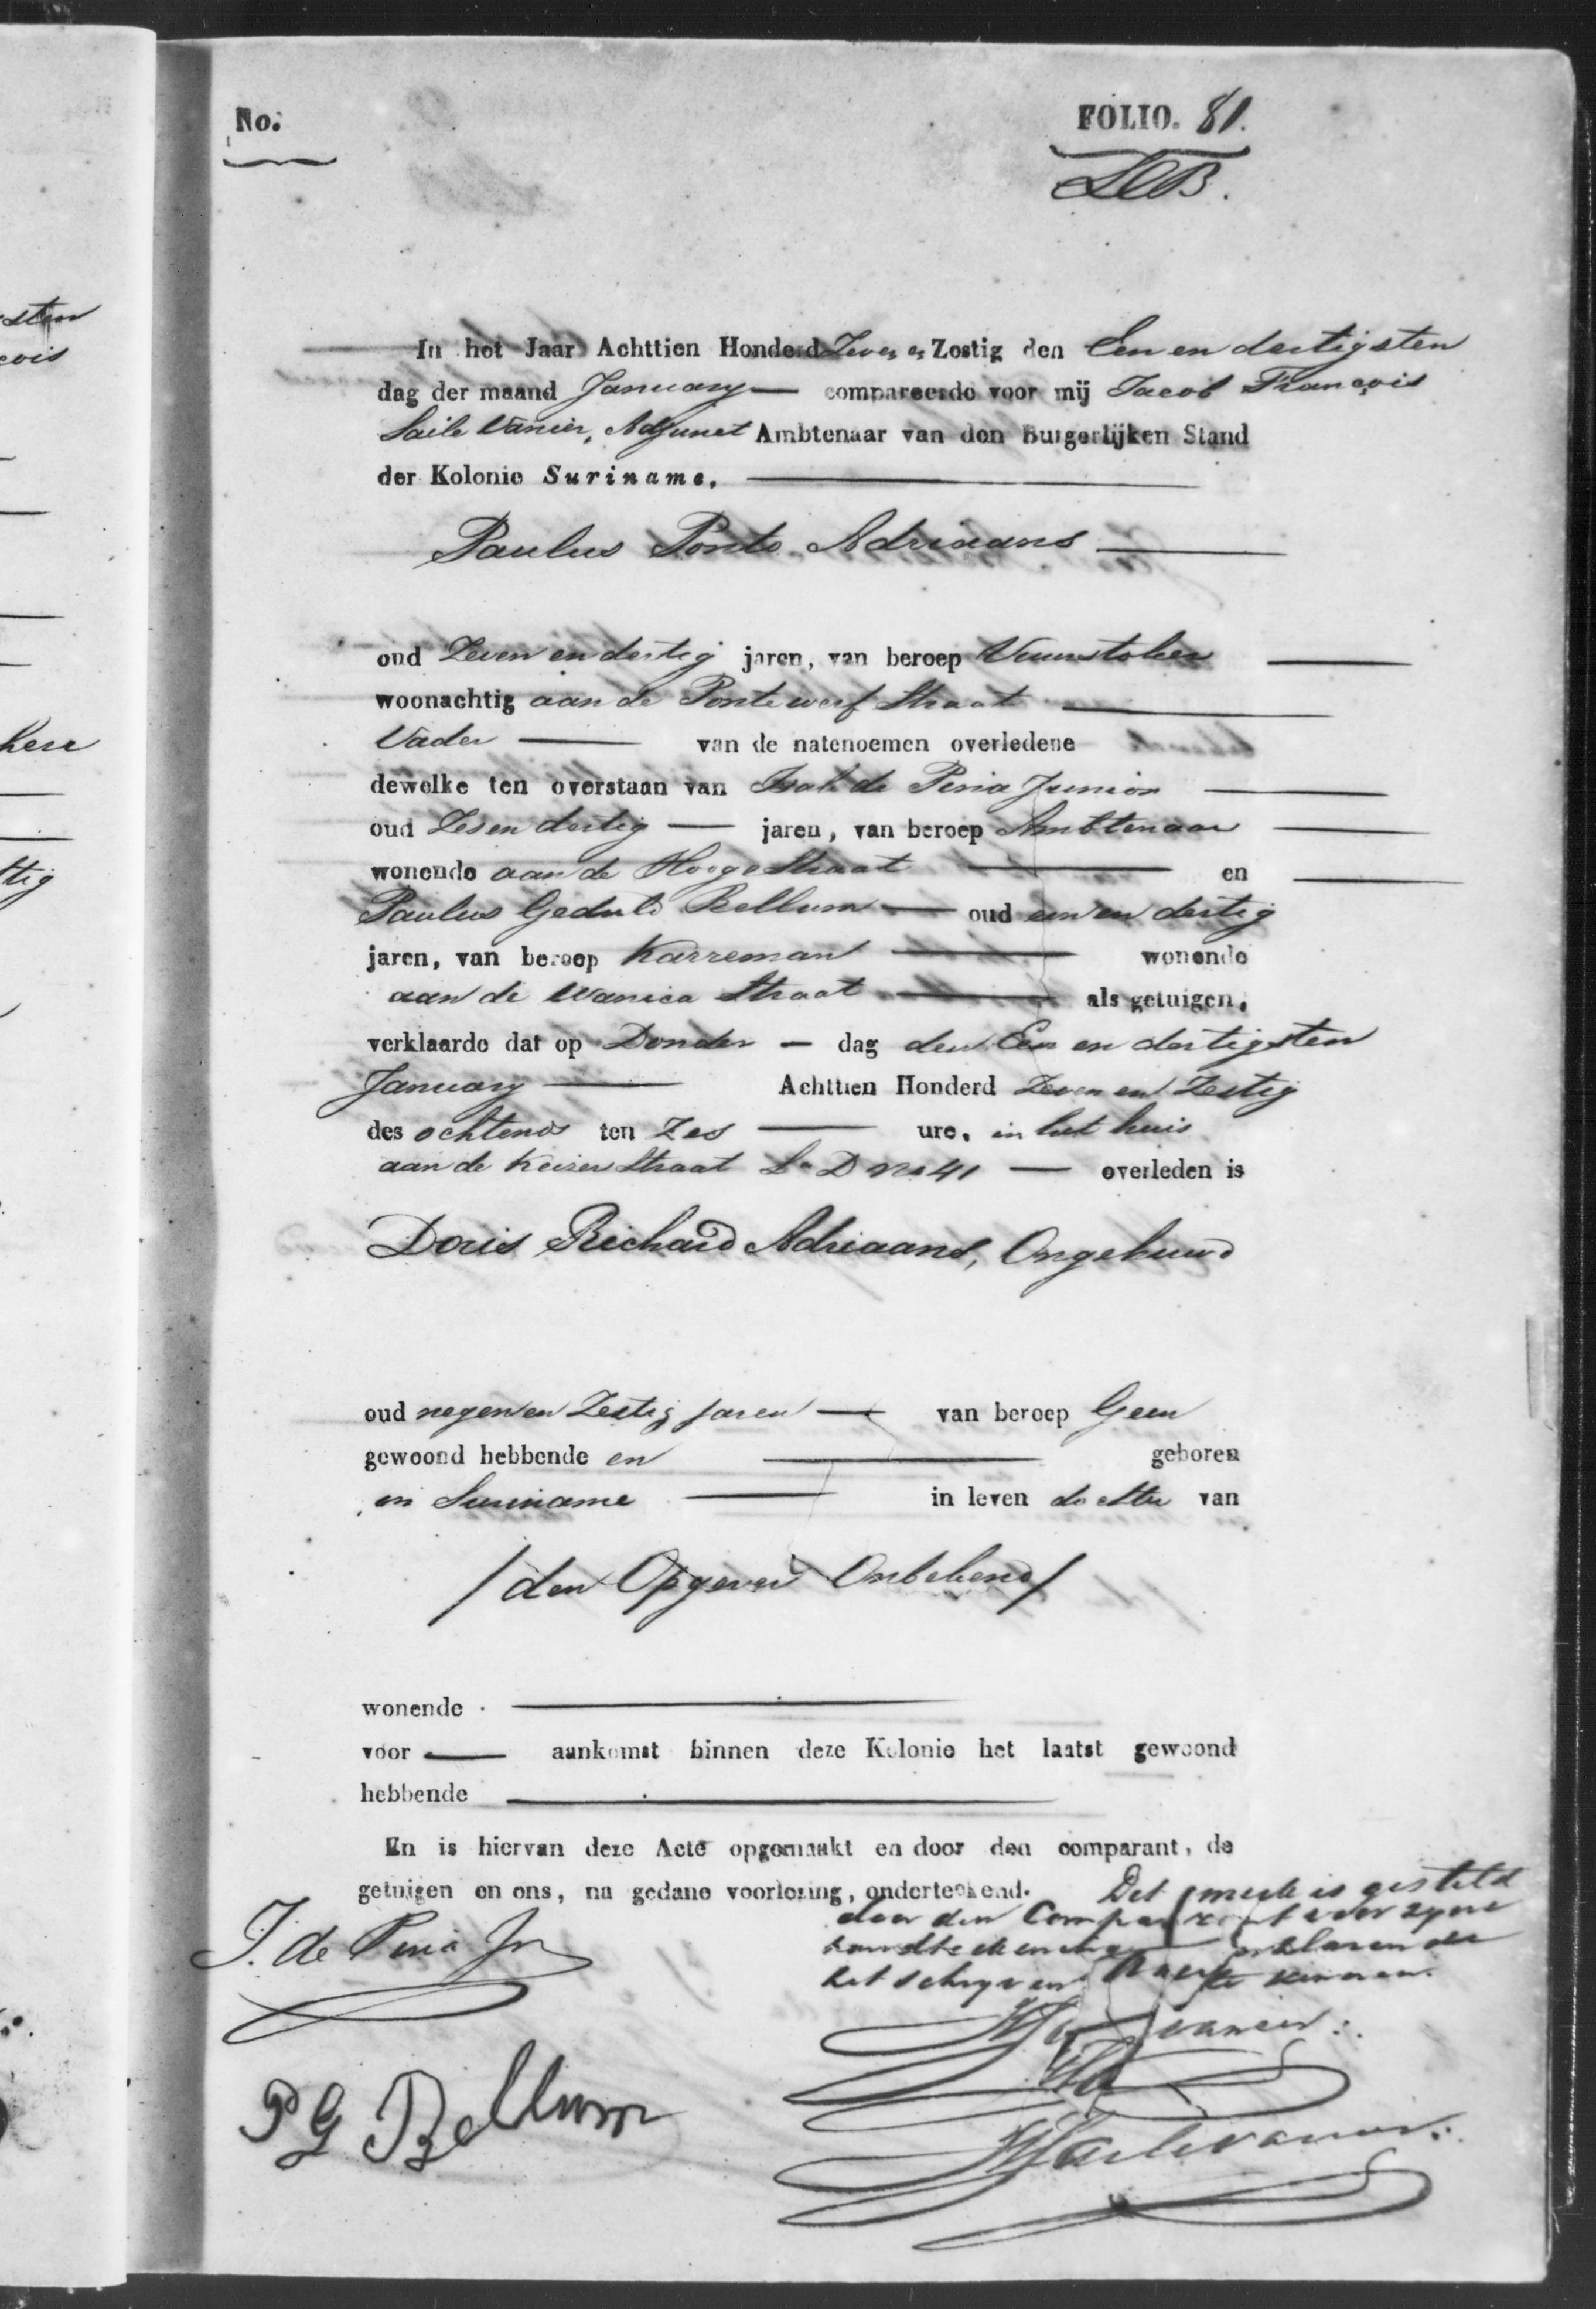 sten
cois
kere
ttig
No.
FOLIO. 81.
In het Jaar Achttien Honderd Zeven en Zestig den Een en dertigsten
dag der maand January — compareerde voor mij Jacob François
Saile Vanier, Adjunct Ambtenaar van den Burgerlijken Stand
der Kolonie Suriname.
Paulus Ponto Adriaans
oud Zeven en dertig jaren, van beroep Vuurstoker
woonachtig aan de Pontewerf Straat
Vader — van de natenoemen overledene
dewelke ten overstaan van Isak de Pinia Junior
oud Zes en dertig — jaren, van beroep Ambtenaar
wonende aan de Hooge Straat — en
Paulus Geduld Bellum — oud een en dertig
jaren, van beroep Karreman — wonende
aan de Wanica Straat — als getuigen,
verklaarde dat op Donder — dag den Een en dertigsten
January — Achttien Honderd Zeven en Zestig
des ochtends ten Zes — ure, in het huis
aan de Keizer Straat La D No 41 — overleden is
Doris Richard Adriaans, Ongehuwd
oud negen en Zestig jaren — van beroep Geen
gewoond hebbende en — geboren
in Suriname — in leven dochter van
/ den Opgever Onbekend /
wonende
voor — aankomst binnen deze Kolonie het laatst gewoond
hebbende
En is hiervan deze Acte opgemaakt en door den comparant, de
getuigen en ons, na gedane voorlezing, onderteekend.
Dit merk is gesteld
door den Comparant voor zyne
handteekening verklarende
het schryven niet te kennen
J. de Pinia Jr
P G Bellum